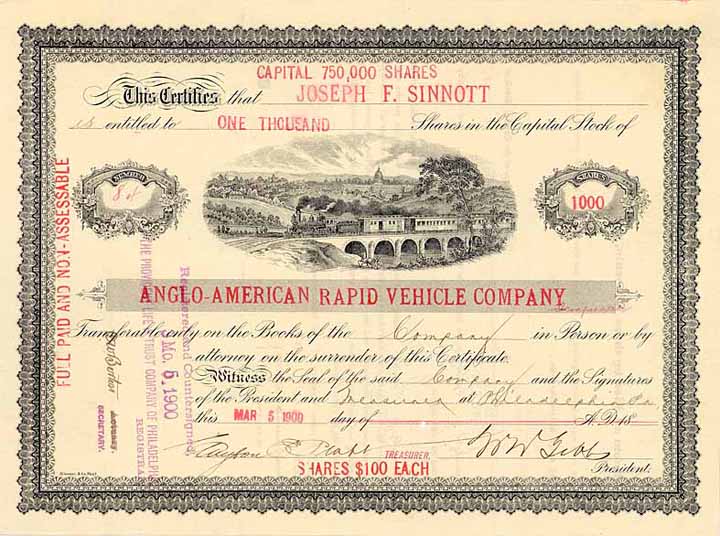 CAPITAL 750,000 SHARES
This Certifies that JOSEPH F. SINNOTT
is entitled to ONE THOUSAND Shares in the Capital Stock of
NUMBER
SHARES
1000
ANGLO-AMERICAN RAPID VEHICLE COMPANY
Transferable only on the Books of the Company in Person or by
attorney on the surrender of this Certificate.
Witness the Seal of the said Company and the Signatures
of the President and Treasurer at Philadelphia Pa.
this MAR 5 1900 day of A.D. 18
TREASURER.
President.
SHARES $100 EACH
FULL PAID AND NON-ASSESSABLE
SECRETARY.
THE PROVIDENT LIFE & TRUST COMPANY OF PHILADELPHIA
REGISTRAR
Registered and Countersigned
5, 1900